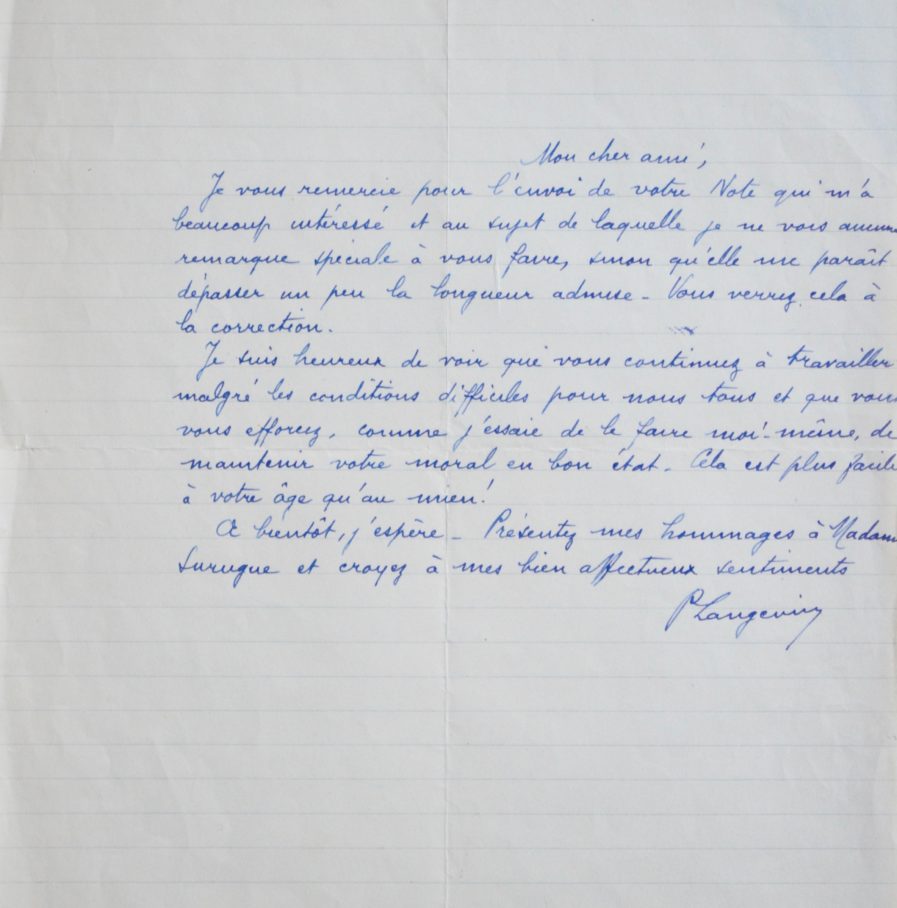 Mon cher ami,
Je vous remercie pour l'envoi de votre Note qui m'a
beaucoup intéressé et au sujet de laquelle je ne vois aucune
remarque spéciale à vous faire, sinon qu'elle me paraît
dépasser un peu la longueur admise - Vous verrez cela à
la correction.
Je suis heureux de voir que vous continuez à travailler
malgré les conditions difficiles pour nous tous et que vous
vous efforcez, comme j'essaie de le faire moi-même, de
maintenir votre moral en bon état - Cela est plus facile
à votre âge qu'au mien!
A bientôt, j'espère - Présentez mes hommages à Madame
Surugue et croyez à mes bien affectueux sentiments
P Langevin